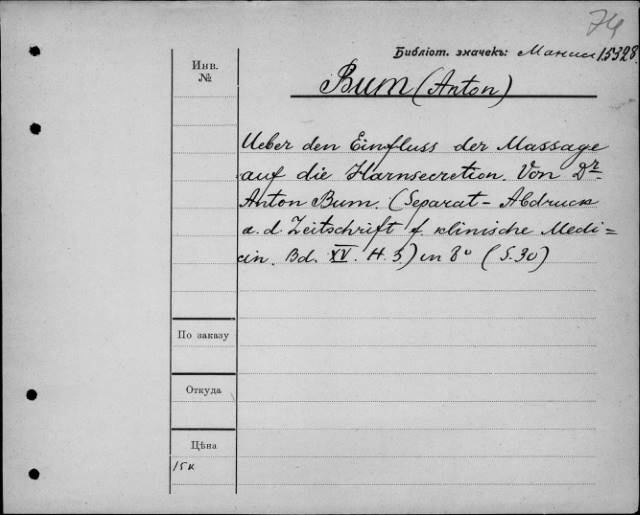 74
Библіот. значекъ: 15328.
Инв.
№
Bum (Anton)
Ueber den Einfluss der Massage
auf die Harnsecretion. Von Dr.
Anton Bum. (Separat-Abdruck
a. d. Zeitschrift f. klinische Medi=
cin. Bd. XV. H. 3.) in 8° (S. 30)
По заказу
Откуда
Цѣна
15к